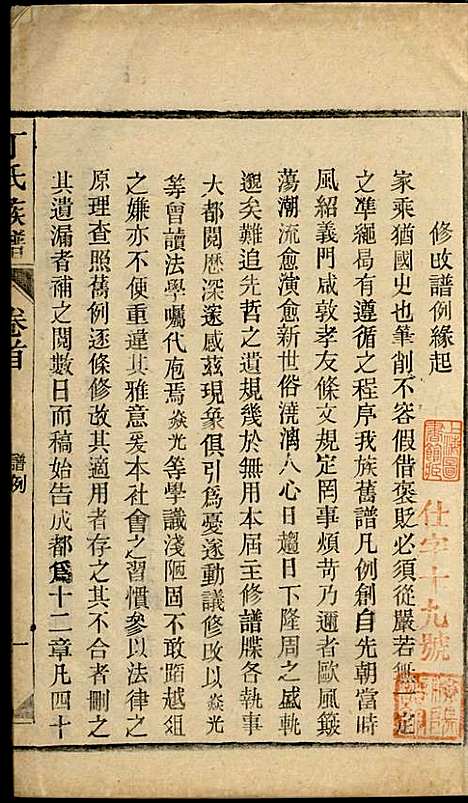 修改譜例緣起
家乘猶國史也筆削不容假借褒貶必須從嚴若無一定
之準繩曷有遵循之程序我族舊譜凡例創自先朝當時
風紹義門咸敦孝友條文規定罔事煩苛乃邇者歐風簸
蕩潮流愈演愈新世俗澆漓人心日趨日下隆周之盛軌
邈矣難追先哲之遺規幾於無用本居主修譜牒各執事
大都閱歷深邃感茲現象俱引爲憂遂動議修改以焱光
等曾讀法學囑代庖焉焱光等學識淺陋固不敢踰越俎
之嫌亦不便重違其雅意爰本社會之習慣參以法律之
原理查照舊例逐條修改其適用者存之其不合者刪之
其遺漏者補之閱數日而稿始告成都爲十二章凡四十
丁氏族譜
卷首
譜例
一
上海圖書館藏
仕字十九號